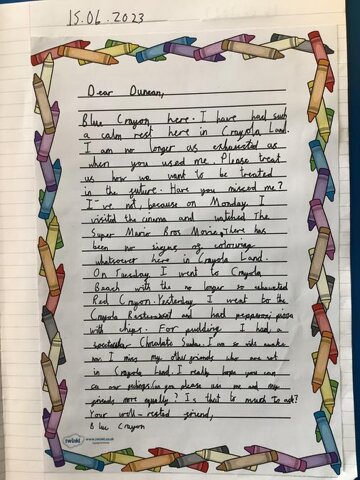 15.06.2023
Dear Duncan,
Blue Crayon here. I have had such
a calm rest here in Crayola Land.
I am no longer as exhausted as
when you used me. Please treat
us how we want to be treated
in the future. Have you missed me?
I've not, because on Monday I
visited the cinema and watched The
Super Mario Bros Movie. There has
been no signs of colouring
whatsoever here in Crayola Land.
On Tuesday I went to Crayola
Beach with the no longer so exhausted
Red Crayon. Yesterday I went to the
Crayola Restaurant and had pepperoni pizza
with chips. For pudding I had a
spectacular Chocolate Sundae. I am so wide awake
now I miss my other friends who are not
in Crayola Land. I really hope you can
us our please use me and my
friends more equally? Is that to much to ask?
Your well-rested friend,
Blue Crayon
twinkl
www.twinkl.co.uk